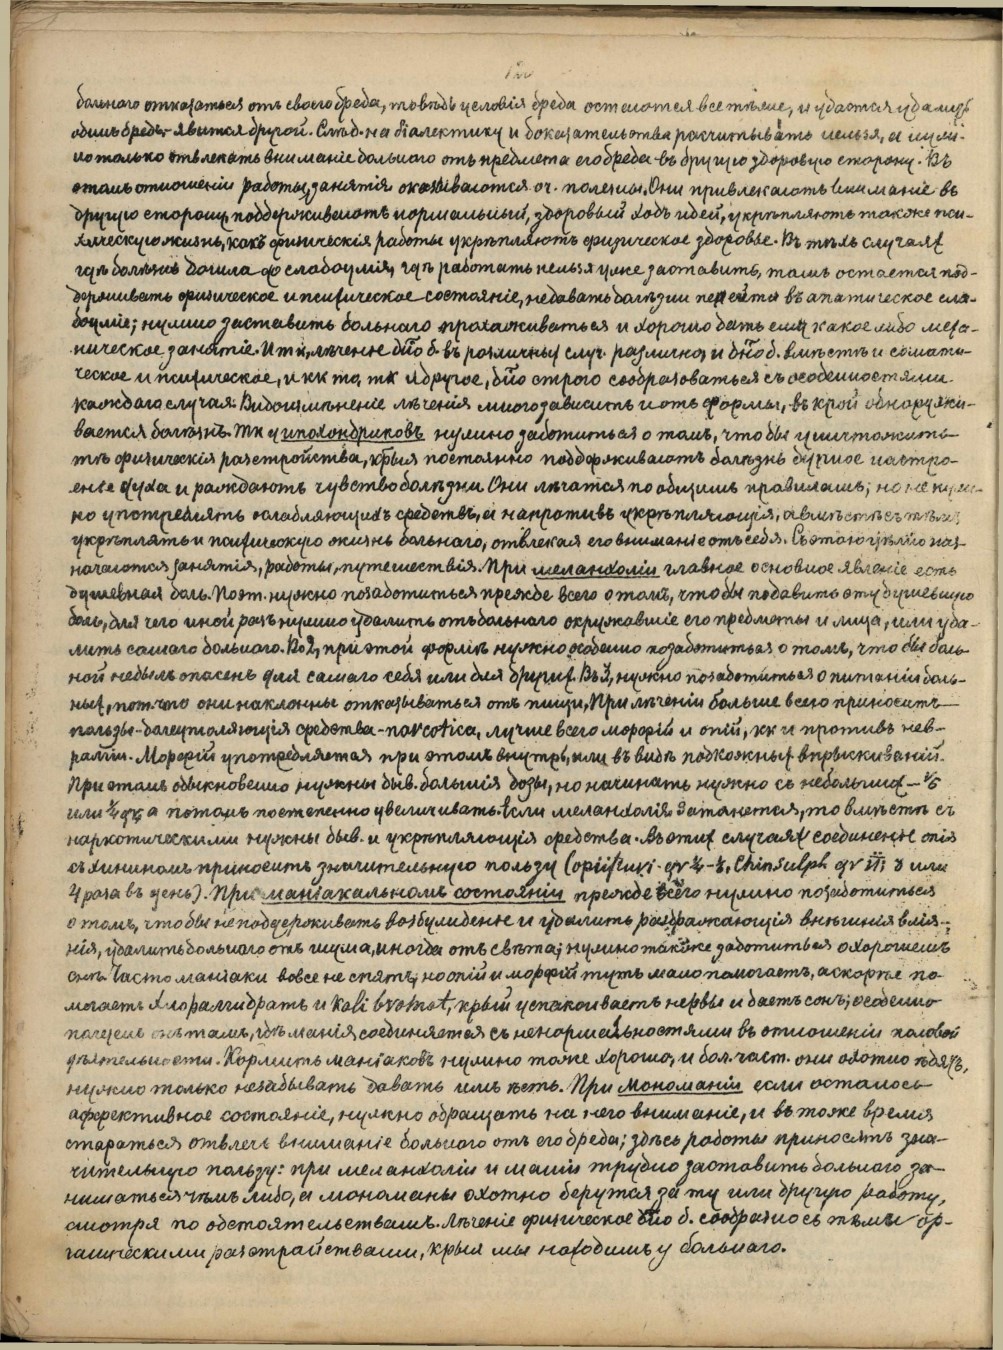 больного отказаться отъ своего бреда, то вѣдь условія бреда остаются все тѣже, и удастся удалить
одинъ бредъ - явится другой. Слѣд. на діалектику и доказательства расчитывать нельзя, а нуж-
но только отвлекать вниманіе больного отъ предмета его бреда въ другую здоровую сторону. Въ
этомъ отношеніи работы, занятія оказываются оч. полезны. Они привлекаютъ вниманіе въ
другую сторону, поддерживаютъ нормальный, здоровый ходъ идей, укрѣпляютъ также пси-
хическую жизнь, какъ физическія работы укрѣпляютъ физическое здоровье. Въ тѣхъ случаях
гдѣ болѣзнь дошла до слабоумія, гдѣ работать нельзя уже заставить, тамъ остается под-
держивать физическое и психическое состояніе, не давать болѣзни перейти въ апатическое сла-
боуміе; нужно заставить больного прохаживаться и хорошо дать ему какое либо меха-
ническое занятіе. Итк, лѣченіе дно б. въ различных случ. различно, и дно б. вмѣстѣ и сомати-
ческое и психическое, и кк то, тк и другое, дно строго сообразоваться съ особенностями
каждаго случая. Видоизмѣненіе лѣченія много зависитъ и отъ формы, въ крой обнаружи-
вается болѣзнь. Тк у ипохондриковъ нужно заботиться о томъ, чтобы уничтожить
тѣ физическія разстройства, крыя постоянно поддерживаютъ болѣзнь дурное настро-
еніе духа и рождаютъ чувство болѣзни. Они лѣчатся по общимъ правиламъ; но не нуж-
но употреблять ослабляющихъ средствъ, а напротивъ укрѣпляющія, а вмѣстѣ съ тѣмъ
укрѣплять и психическую жизнь больного, отвлекая его вниманіе отъ себя. Съ этою цѣлію наз-
начаются занятія, работы, путешествія. При меланхоліи главное основное явленіе есть
душевная боль. Поэт. нужно позаботиться прежде всего о томъ, чтобы подавить эту душевную
боль, для чего иной разъ нужно удалить отъ больного окружавшіе его предметы и лица, или уда-
лить самаго больного. Во 2, при этой формѣ нужно особенно позаботиться о томъ, чтобы боль-
ной небылъ опасенъ для самаго себя или для других. Въ 3, нужно позаботиться о питаніи боль-
ных, пот. что они наклонны отказываться отъ пищи. При лѣченіи больше всего приносятъ
пользы - болеутоляющія средства - narcotica, лучше всего морфій и опій, кк и противъ нев-
ралгіи. Морфій употребляется при этомъ внутрь, или въ видѣ подкожных впрыскиваній.
При этомъ обыкновенно нужны быв. большія дозы, но начинать нужно съ небольших - 1/6
или 1/4 gr, а потомъ постепенно увеличивать. Если меланхолія затянется, то вмѣстѣ съ
наркотическими нужны быв. и укрѣпляющія средства. Въ этих случаях соединеніе опія
съ хининомъ приноситъ значительную пользу (opii puri gr 1/4-1/2, Chin. sulph. gr iii; 3 или
4 раза въ день). При маніакальномъ состояніи прежде всего нужно позаботиться
о томъ, чтобы не поддерживать возбужденіе и удалить раздражающія внѣшнія влія-
нія, удалить больного отъ шума, иногда отъ свѣта; нужно также заботиться о хорошемъ
снѣ. Часто маніаки вовсе не спятъ; но опій и морфій тутъ мало помогаетъ, а скорѣе по-
могаетъ Хлоралгидратъ и Kali bromat, крый успокоиваетъ нервы и даетъ сонъ; особенно
полезенъ онъ тамъ, гдѣ манія соединяется съ ненормальностями въ отношеніи половой
дѣятельности. Кормить маніаковъ нужно тоже хорошо, и бол. част. они охотно ѣдятъ,
нужно только незабывать давать имъ ѣсть. При мономаніи если осталось
аффективное состояніе, нужно обращать на него вниманіе, и въ тоже время
стараться отвлечь вниманіе больного отъ его бреда; здѣсь работы приносятъ зна-
чительную пользу: при меланхоліи и маніи трудно заставить больного за-
ниматься чѣмъ либо, а мономаны охотно берутся за ту или другую работу,
смотря по обстоятельствамъ. Лѣченіе физическое дно б. сообразно съ тѣми ор-
ганическими разстройствами, крыя мы находимъ у больного.